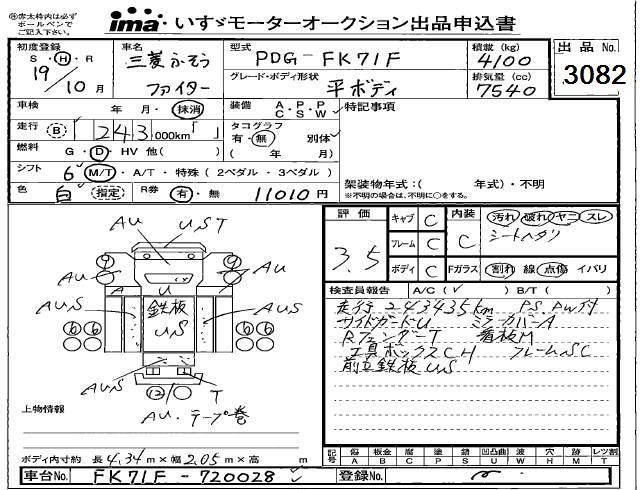 ㊟赤太枠内は必ず
ボールペンで
ご記入下さい。
ima・いすゞモーターオークション出品申込書
初度登録
S・H・R
19/10月
車名
三菱ふそう
ファイター
型式
PDG-FK71F
グレード・ボディ形状
平ボディ
積載(kg)
4100
排気量(cc)
7540
出品No.
3082
車検 年・月・抹消
装備 A・P・P C・S・W
特記事項
走行 B 243 000km
タコグラフ
有・無 別体
( 年 月)
燃料 G・D・HV 他( )
シフト 6 M/T・A/T・特殊(2ペダル・3ペダル)
色 白 指定 R券 有・無 11010円
架装物年式:( 年式)・不明
※不明の場合は、不明に○をする。
AU UST
9 9
AU U AU
鉄板
US
AUS AUS
6 6 6 6
AUS
12
AU. テープ巻
上物情報
ボディ内寸約 長4.34m×幅2.05m×高 m
車台No. FK71F-720028
評価
3.5
キャブ C
フレーム C
ボディ C
内装 C 汚れ 破れ ヤニ スレ
シートヘタリ
Fガラス 割れ 線 点傷 イバリ
検査員報告 A/C(✓) B/T( )
走行243435km PS.PW付
サイドガードU ミラーカバーA
RフェンダーT 看板M
工具ボックスCH フレームSC
前立鉄板US
記号
傷 板金 腐 塗 錆 凹凸曲 波 穴 跡 レツ割
A B C P S U W H M T
登録No.